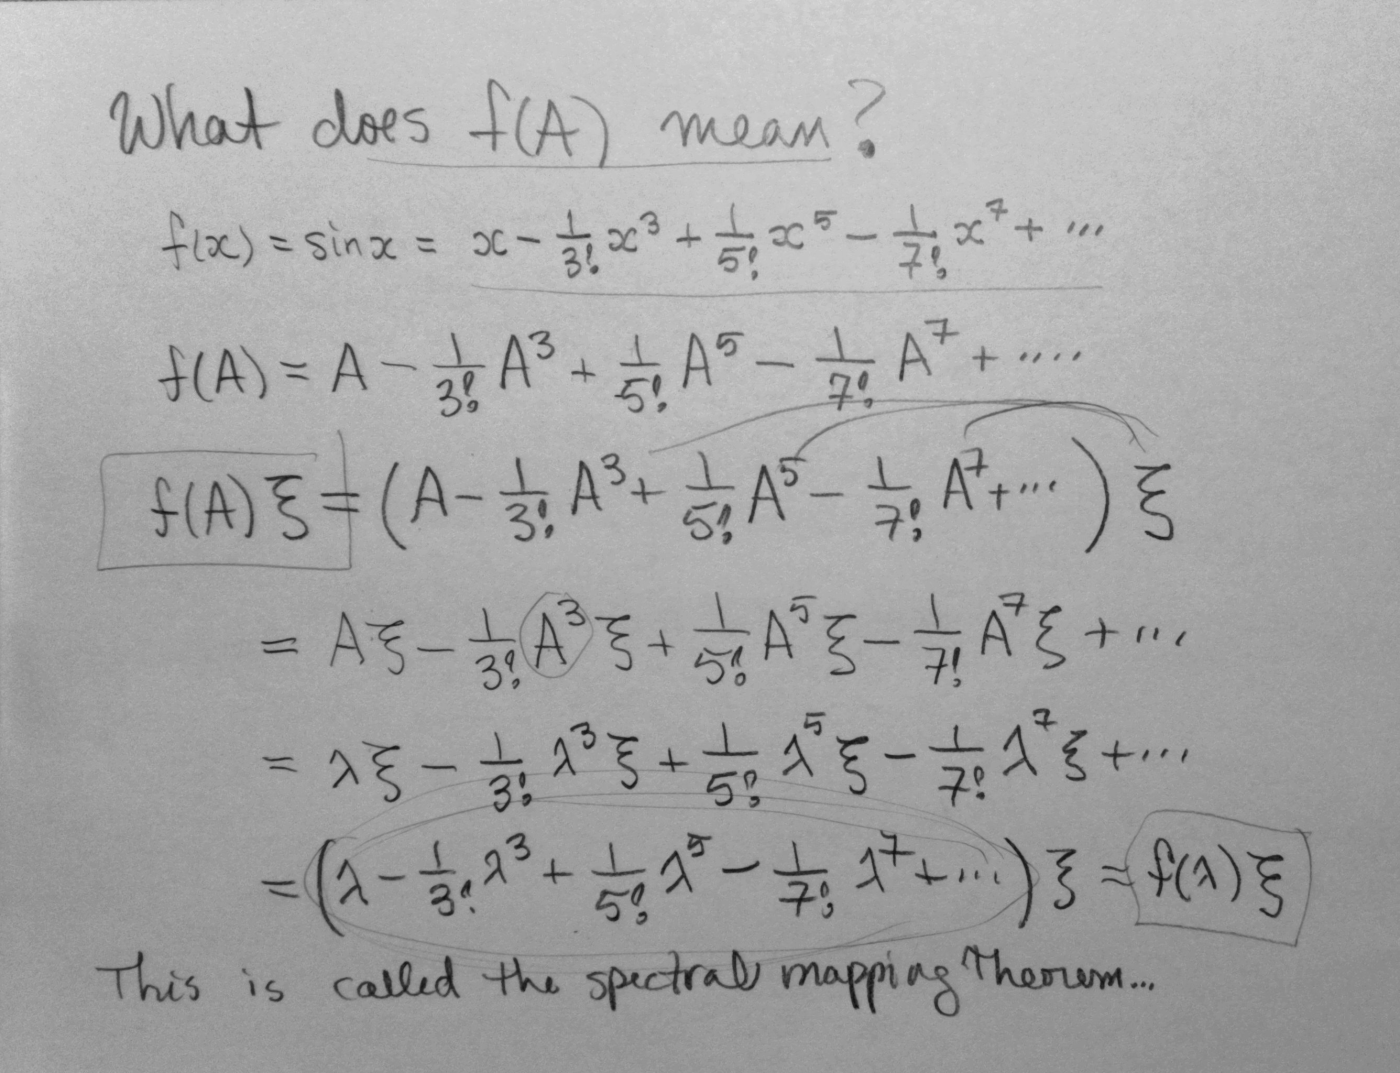 What does f(A) mean?
f(x) = sin x = x - 1/3! x³ + 1/5! x⁵ - 1/7! x⁷ + ...
f(A) = A - 1/3! A³ + 1/5! A⁵ - 1/7! A⁷ + ....
f(A) ξ = (A - 1/3! A³ + 1/5! A⁵ - 1/7! A⁷ + ...) ξ
= Aξ - 1/3! A³ ξ + 1/5! A⁵ ξ - 1/7! A⁷ ξ + ...
= λξ - 1/3! λ³ ξ + 1/5! λ⁵ ξ - 1/7! λ⁷ ξ + ...
= (λ - 1/3! λ³ + 1/5! λ⁵ - 1/7! λ⁷ + ...) ξ = f(λ) ξ
This is called the spectral mapping Theorem...